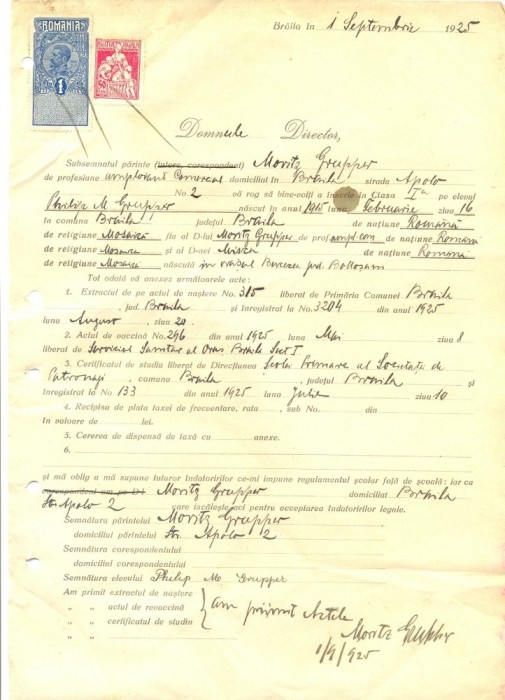 Brăila în 1 Septembrie 1925
ROMANIA
1
Domnule Director,
Subsemnatul părinte (tutore, corespondent) Moritz Grupper
de profesiune amploiant Comercial domiciliat în Brăila strada Apolo
No. 2 vă rog să bine-voiți a înscrie în Clasa I-a pe elevul
Philip M Grupper născut în anul 1915 luna Februarie ziua 16
în comuna Brăila județul Brăila de națiune Română
de religiune Mosaică fiu al D-lui Moritz Grupper de prof. ampl. com de națiune Română
de religiune Mosaică și al D-nei de națiune Română
de religiune Mosaică născută în orașul Bucecea jud. Botoșani
Tot odată vă anexez următoarele acte:
1. Extractul de pe actul de naștere No. 315 liberat de Primăria Comunei Brăila
, jud. Brăila și înregistrat la No. 3204 din anul 1925
luna August, ziua 20.
2. Actul de vaccină No. 296 din anul 1925 luna Mai ziua 8
liberat de Serviciul Sanitar al Oraș. Brăila Sect I
3. Certificatul de studia liberat de Direcțiunea Școlei Primare al Societăței de
Patronaj, comuna Brăila, județul Brăila și
înregistrat la No. 133 din anul 1925 luna Julie ziua 10
4. Recipisa de plata taxei de frecventare, rata , sub No. din
în valoare de lei.
5. Cererea de dispensă de taxă cu anexe.
6.
și mă oblig a mă supune tutulor îndatoririlor ce-mi impune regulamentul școlar față de școală: iar ca
corespondent am pe D-l Moritz Grupper domiciliat Brăila
Str. Apolo 2 care iscălește aci pentru acceptarea îndatoririlor legale.
Semnătura părintelui Moritz Grupper
domiciliul părintelui Str. Apolo 2
Semnătura corespondentului
domiciliul corespondentului
Semnătura elevului Philip M. Grupper
Am primit extractul de naștere
„ „ actul de revaccină
„ „ certificatul de studii
„ „
am primit Actele
Moritz Grupper
1/9/925